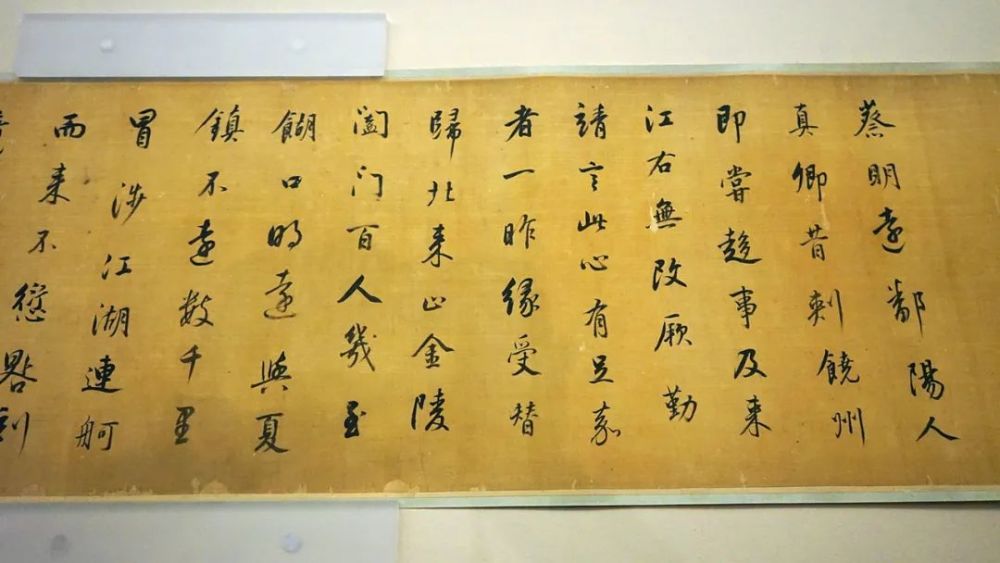 蔡明遠鄱陽人
真卿昔刺饒州
即嘗趍事及来
江右無改厥勤
靖言此心有足嘉
者一昨緣受替
歸北来止金陵
闔门百人幾至
餬口明遠與夏
鎮不遠數千里
冒涉江湖連舸
而来不愆晷刻